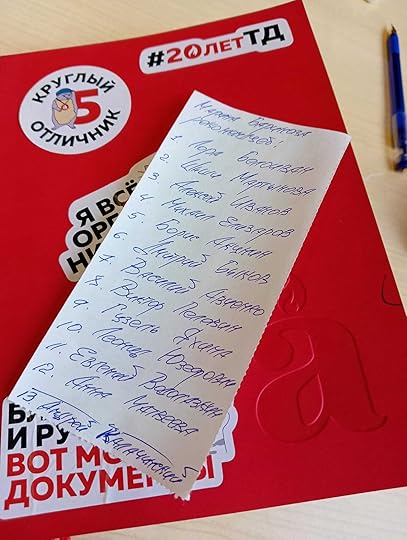 #20летТД
КРУГЛЫЙ
5
ОТЛИЧНИК
Я ВСЁ
ОР
НИ
Марина
рекомендует:
1. Лора Белоиван
2. Маша Мартынова
3. Алексей Иванов
4. Михаил Елизаров
5. Борис Акунин
6. Дмитрий Быков
7. Василий Авченко
8. Виктор Пелевин
9. Гузель Яхина
10. Леонид Юзефович
11. Евгений Водолазкин
12. Анна Матвеева
13 Андрей
И РУ
ВОТ МО
ДОКУМЕНТЫ
а